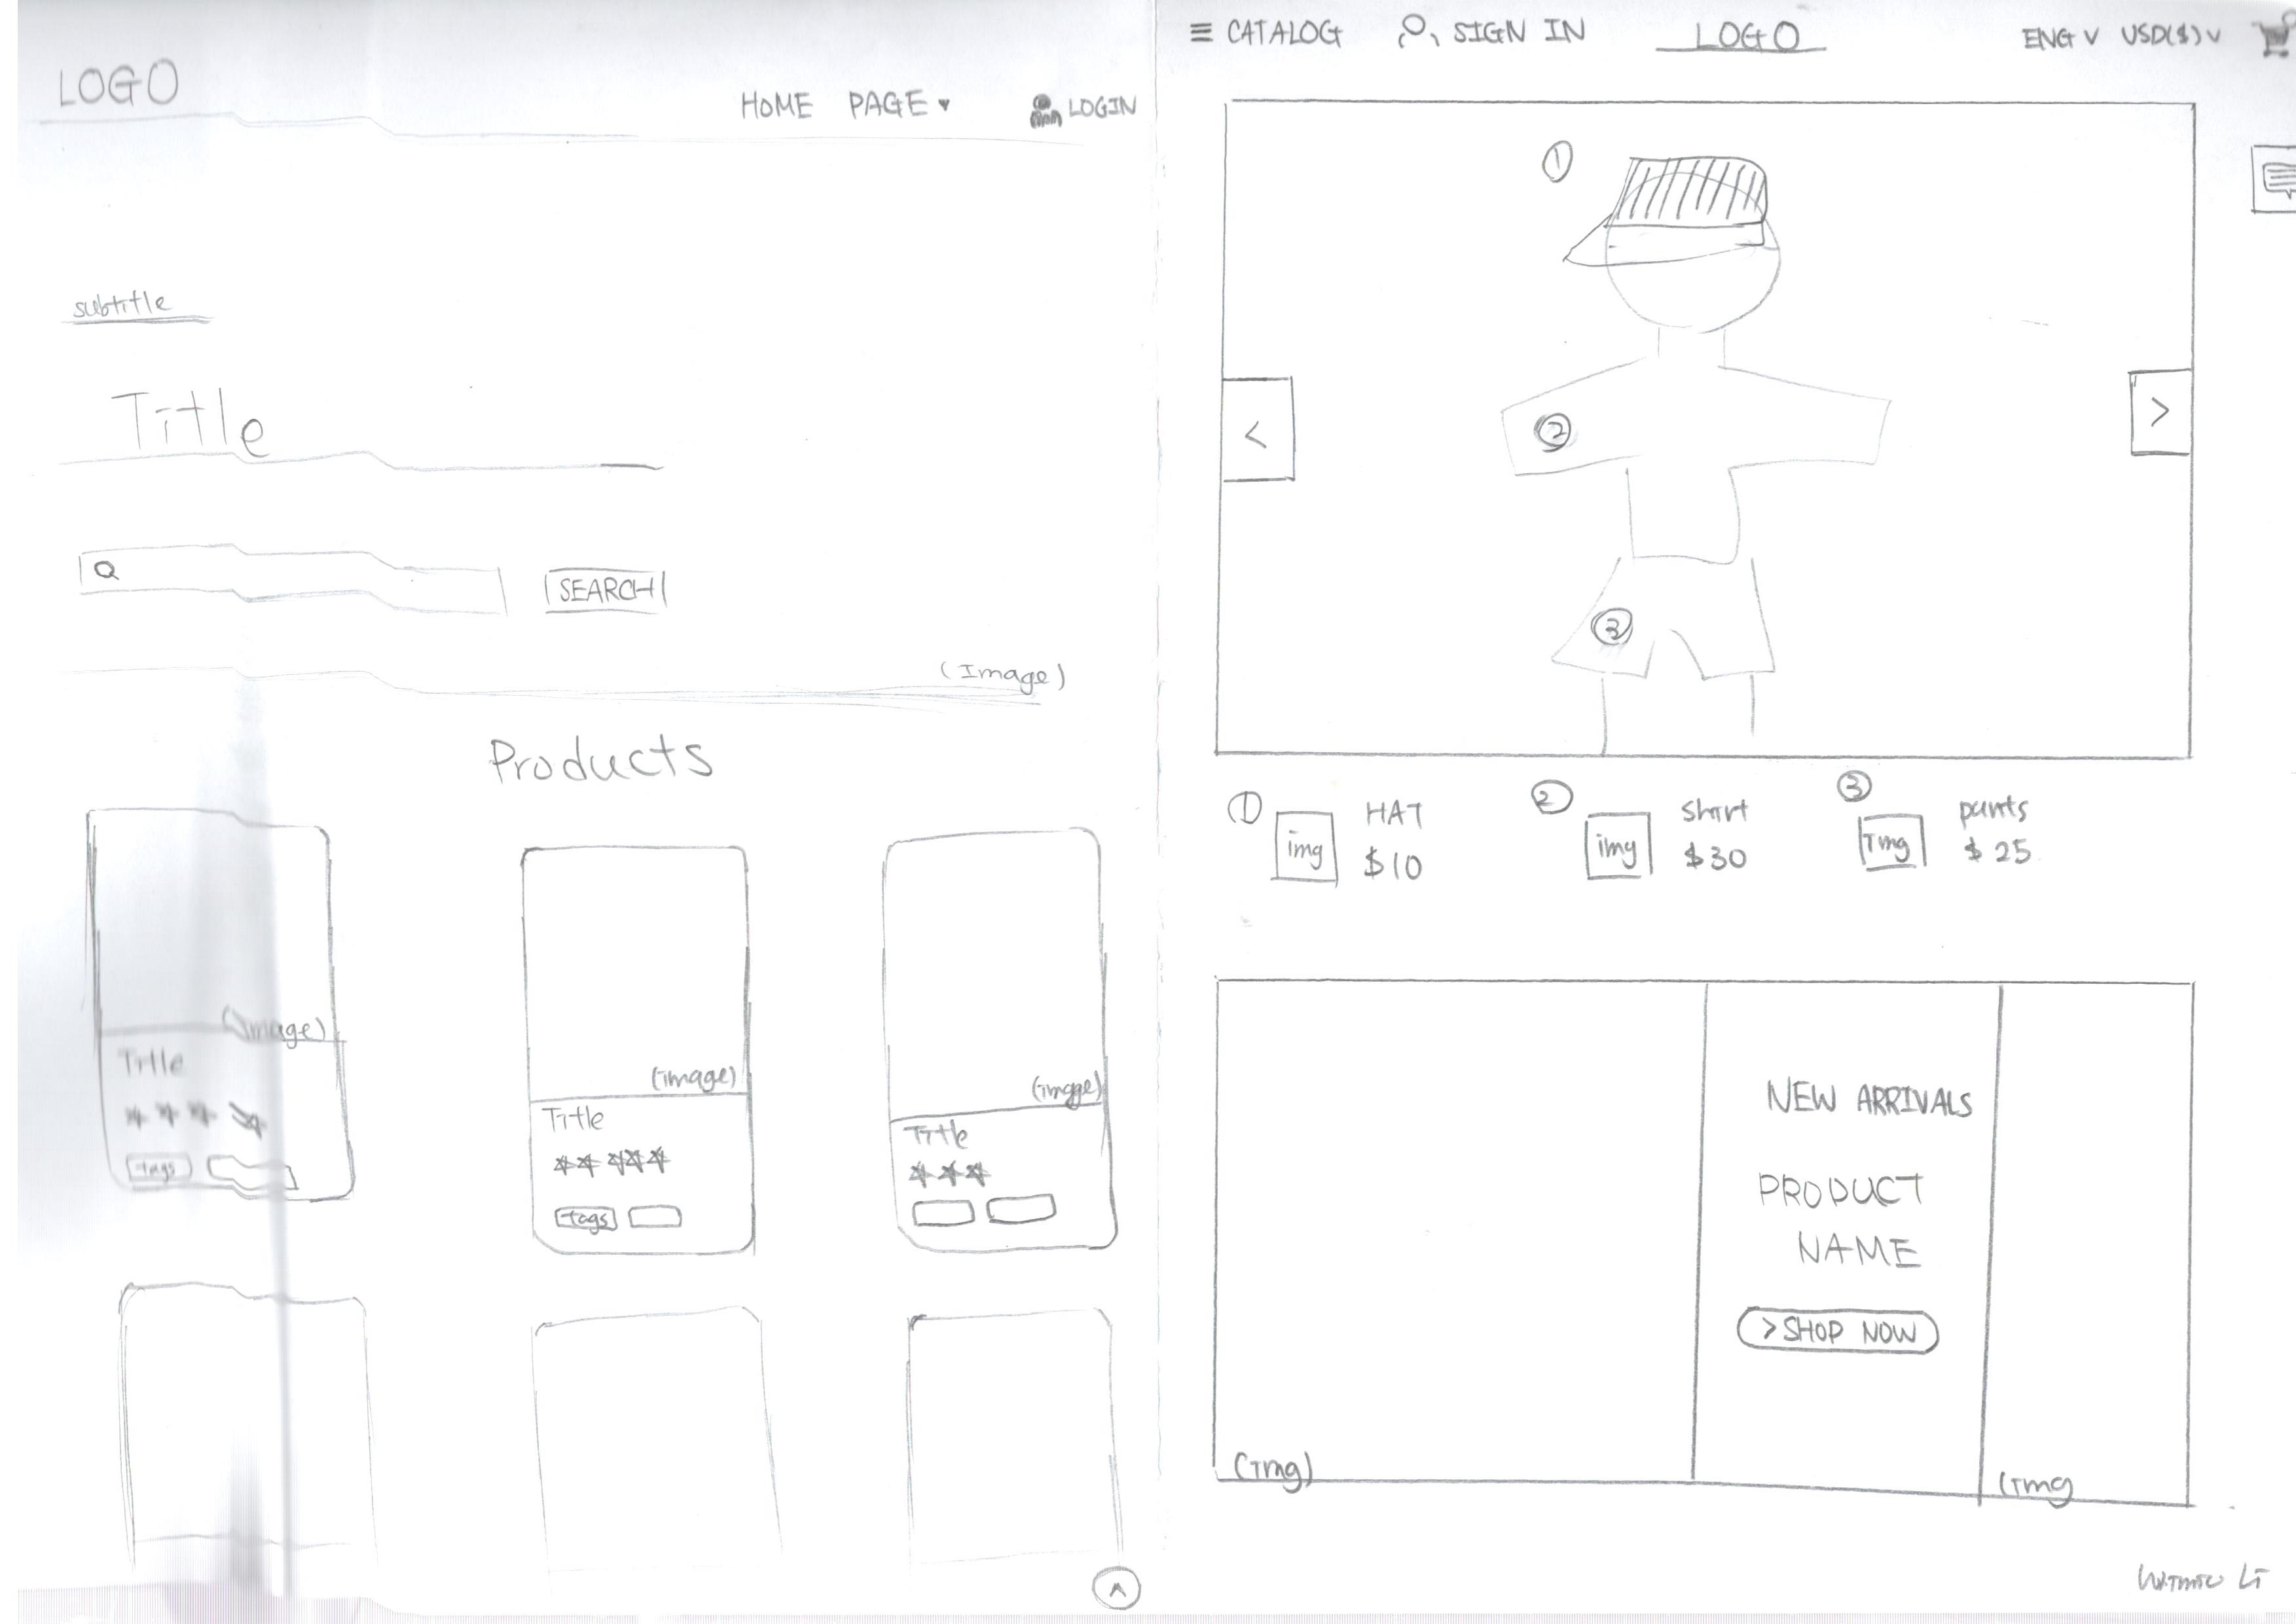 LOGO
HOME PAGE LOGIN
subtitle
Title
SEARCH
(Image)
Products
(Image)
Title
tags
(image)
Title
tags
(image)
Title
^
≡ CATALOG SIGN IN LOGO ENG ∨ USD($) ∨
①
②
③
<
>
① img HAT
$10
② img shirt
$30
③ Img pants
$25
NEW ARRIVALS
PRODUCT
NAME
> SHOP NOW
(Img)
(Img
Li